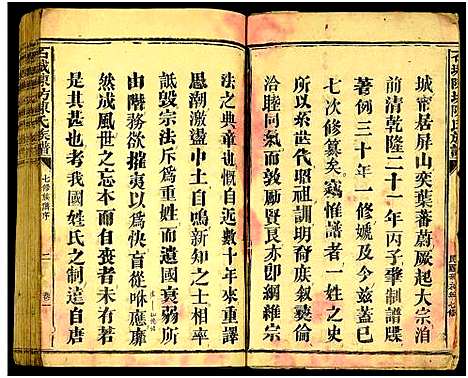 城帝居屏山奕葉蕃蔚厥起大宗洎
前清乾隆二十一年丙子肇制譜牒
著例三十年一修嬔及今茲蓋已
七次修篹矣竊惟譜者一姓之史
所以系世代昭祖訓明裔族敘彝倫
洽睦同氣而敦勵賢良亦卽綱維宗
法之典章也慨自近數十年來重譯
思潮激盪中土自鳴新知之士相率
詆毀宗法斥爲重姓而遺國衰弱所
由階務欲摧夷以爲快盲從咻應靡
然成風世之忘本衊祖者未有若
是其甚也考我國姓氏之制遠自唐
石城陳坊陳氏族譜
七修族譜序
二
卷一